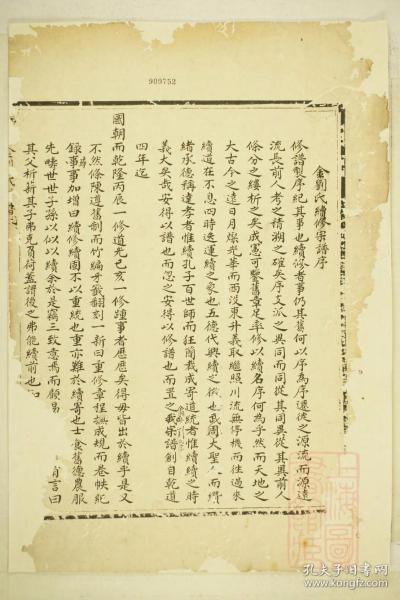 909752
金劉氏續修宗譜序
修譜製序紀其事也續修者事仍其舊何以序為序遷徙之源流而源遠
流長前人考之清溯之確矣序支派之異同而同從其同異從其異前人
條分之縷析之矣成憲可鑒舊章足率修以續名序何為乎然而天地之
大古今之遠日月燦光華而西沒東升義取繼照川流無停機而往過來
續道在不息四時迭運續之象也五德代興續之徵也武周大聖人而纘
緒承德稱達孝者惟續孔子百世師而狂簡裁成寄道統者惟續續之時
義大矣哉安得以譜也而忽之安得以修譜也而置之我宗譜創自乾道
四年迄
國朝而乾隆丙辰一修道光己亥一修踵事者歷歷矣得毋皆出於續乎是又
不然條陳道舊制而竹編乎戩翻刻一新曰重修章程撫成規而卷帙紀
錄事事加增曰續修續固不以重統也重亦難於續寄也士食舊德農服
先疇世世子孫以似以續余於是竊三致意焉而顧易 肯言曰
其父析薪其子弗克負荷蓋譜後之弗能續前也如
孔夫子旧书网
www.kongfz.com